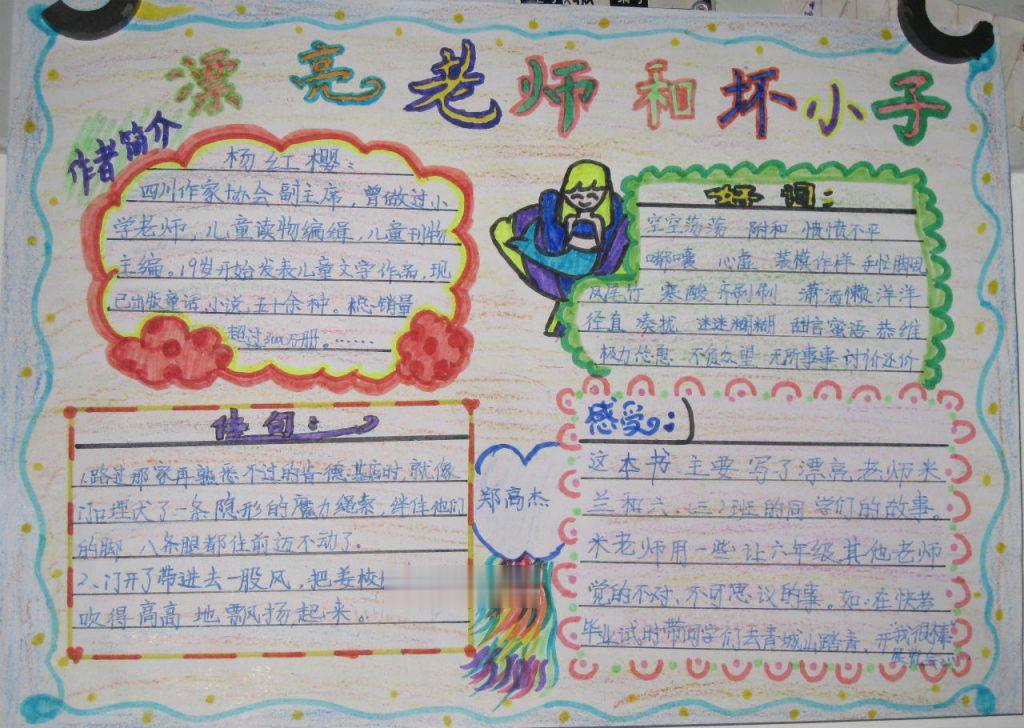 漂亮老师和坏小子
作者简介
杨红樱：
四川作家协会副主席，曾做过小
学老师，儿童读物编缉，儿童刊物
主编。19岁开始发表儿童文学作品，现
已出版童话、小说、五十余种。总销量
超过300万册。……
好词：
空空荡荡 附和 愤愤不平
嘟囔 心虚 装模作样 手忙脚乱
凤尾竹 寒酸 齐刷刷 潇洒 懒洋洋
径直 凑拢 迷迷糊糊 甜言蜜语 恭维
极力怂恿 不负众望 无所事事 讨价还价
佳句：
1.路过那家再熟悉不过的肯德基店时，就像
埋伏了一条隐形的魔力绳索，绊住他们
的脚，八条腿都往前迈不动了。
2、门开了带进去一股风，把姜校
吹得高高地飘扬起来。
郑高杰
感受：
这本书主要写了漂亮老师米
兰和六、（三）班的同学们的故事。
米老师用一些让六年级其他老师
觉的不对、不可思议的事。如：在快考
毕业试时带同学们去青城山踏青、开我很棒
展览会